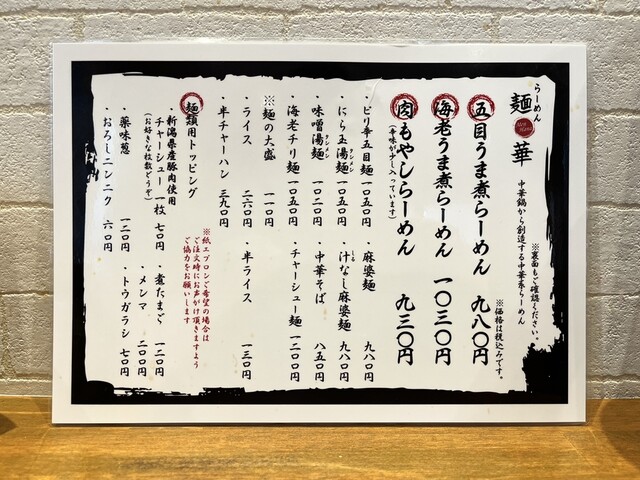 らーめん
麺華
中華鍋から創造する中華系らーめん
※裏面もご確認ください。
※価格は税込みです。
五目うま煮らーめん 九八〇円
海老うま煮らーめん 一〇三〇円
肉もやしらーめん 九三〇円
(辛味が少し入っています)
・ピリ辛五目麺 一〇五〇円
・麻婆麺 九八〇円
・にら玉湯麺 一〇五〇円
タンメン
・汁なし麻婆麺 九八〇円
しる
・味噌湯麺 一〇二〇円
タンメン
・中華そば 八五〇円
・海老チリ麺 一〇五〇円
・チャーシュー麺 一二〇〇円
※麺の大盛 一一〇円
・ライス 二六〇円
・半ライス 一三〇円
・半チャーハン 三九〇円
※紙エプロンご希望の場合は
ご注文時にお声がけ頂きますよう
ご協力をお願いします
麺類用トッピング
新潟県産豚肉使用
チャーシュー 一枚 七〇円
(お好きな枚数どうぞ)
・煮たまご 一二〇円
・メンマ 二〇〇円
・薬味葱 一二〇円
・トウガラシ 七〇円
・おろしニンニク 六〇円